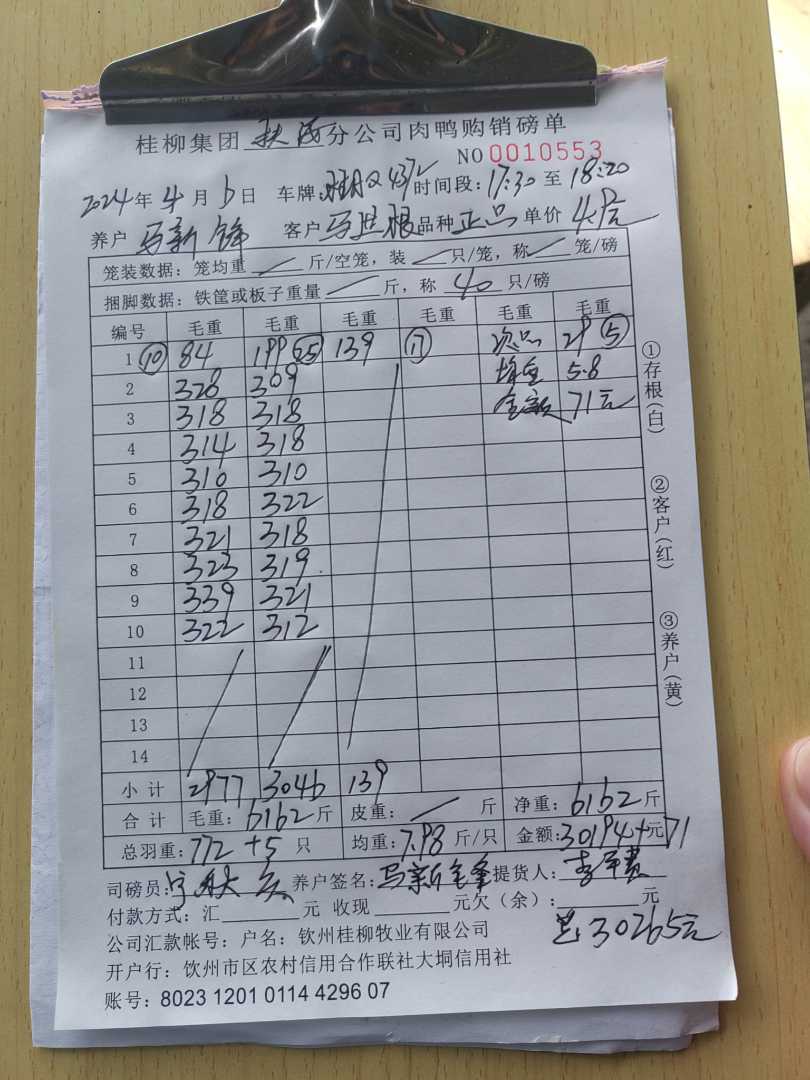 桂柳集团 分公司肉鸭购销磅单
NO 0010553
2024年4月6日 车牌: 4372 时间段:17:30至18:20
养户 马新锋 客户 马世根 品种 正品 单价 4.9元
笼装数据:笼均重 / 斤/空笼,装 / 只/笼,称 / 笼/磅
捆脚数据:铁筐或板子重量 / 斤,称 40 只/磅
编号 毛重 毛重 毛重 毛重 毛重 毛重
1 ⑩ 84 199 ㉕ 139 ⑰ 次品 29 ⑤
2 328 309 均重 5.8
3 318 318 金额 71元
4 314 318
5 310 310
6 318 322
7 321 318
8 323 319
9 339 321
10 322 312
11
12
13
14
小计 2977 3046 139
合计 毛重:6162斤 皮重: / 斤 净重:6162斤
总羽重:772+5只 均重:7.98斤/只 金额:30194元+71
司磅员: 养户签名:马新锋 提货人:
付款方式:汇 元 收现 元欠(余): 元
公司汇款帐号:户名:钦州桂柳牧业有限公司
总30265元
开户行:钦州市区农村信用合作联社大垌信用社
账号:8023 1201 0114 4296 07
①存根(白)
②客户(红)
③养户(黄)